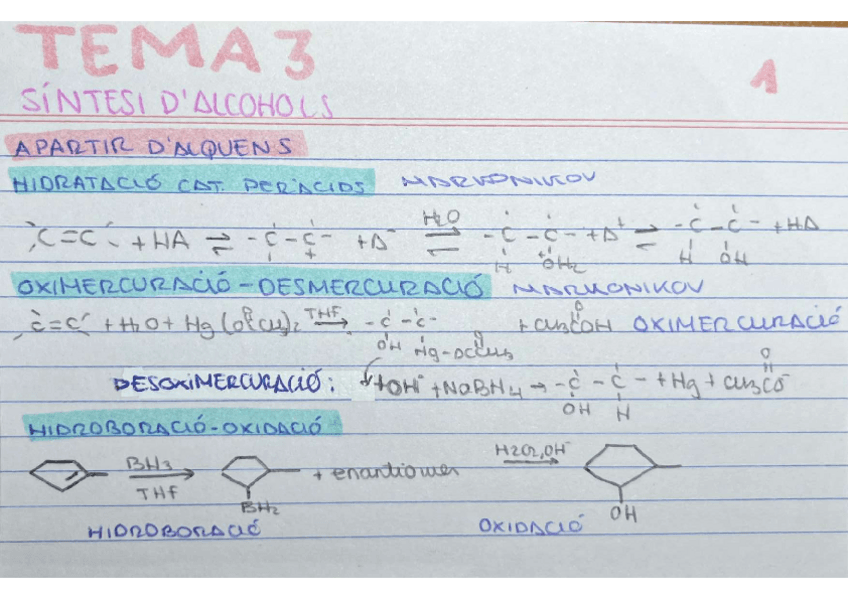 TEMA 3
1
SÍNTESI D'ALCOHOLS
APARTIR D'ALQUENS
HIDRATACIÓ CAT. PER ÀCIDS MARKONIKOV
C=C + HA ⇌ -C-C- + A⁻ ⇌ H₂O -C-C- + A⁺ ⇌ -C-C- + HA
+ H ⁺OH₂ H OH
OXIMERCURACIÓ-DESMERCURACIÓ MARKONIKOV
C=C + H₂O + Hg(OCCH₃)₂ THF → -C-C- + CH₃COH OXIMERCURACIÓ
O OH Hg-OCCH₃ O O
DESOXIMERCURACIÓ: +OH⁻ + NaBH₄ → -C-C- + Hg + CH₃CO⁻
OH H O
HIDROBORACIÓ-OXIDACIÓ
BH₃ THF → BH₂ + enantiomer H2O2, OH⁻ → OH
HIDROBORACIÓ OXIDACIÓ